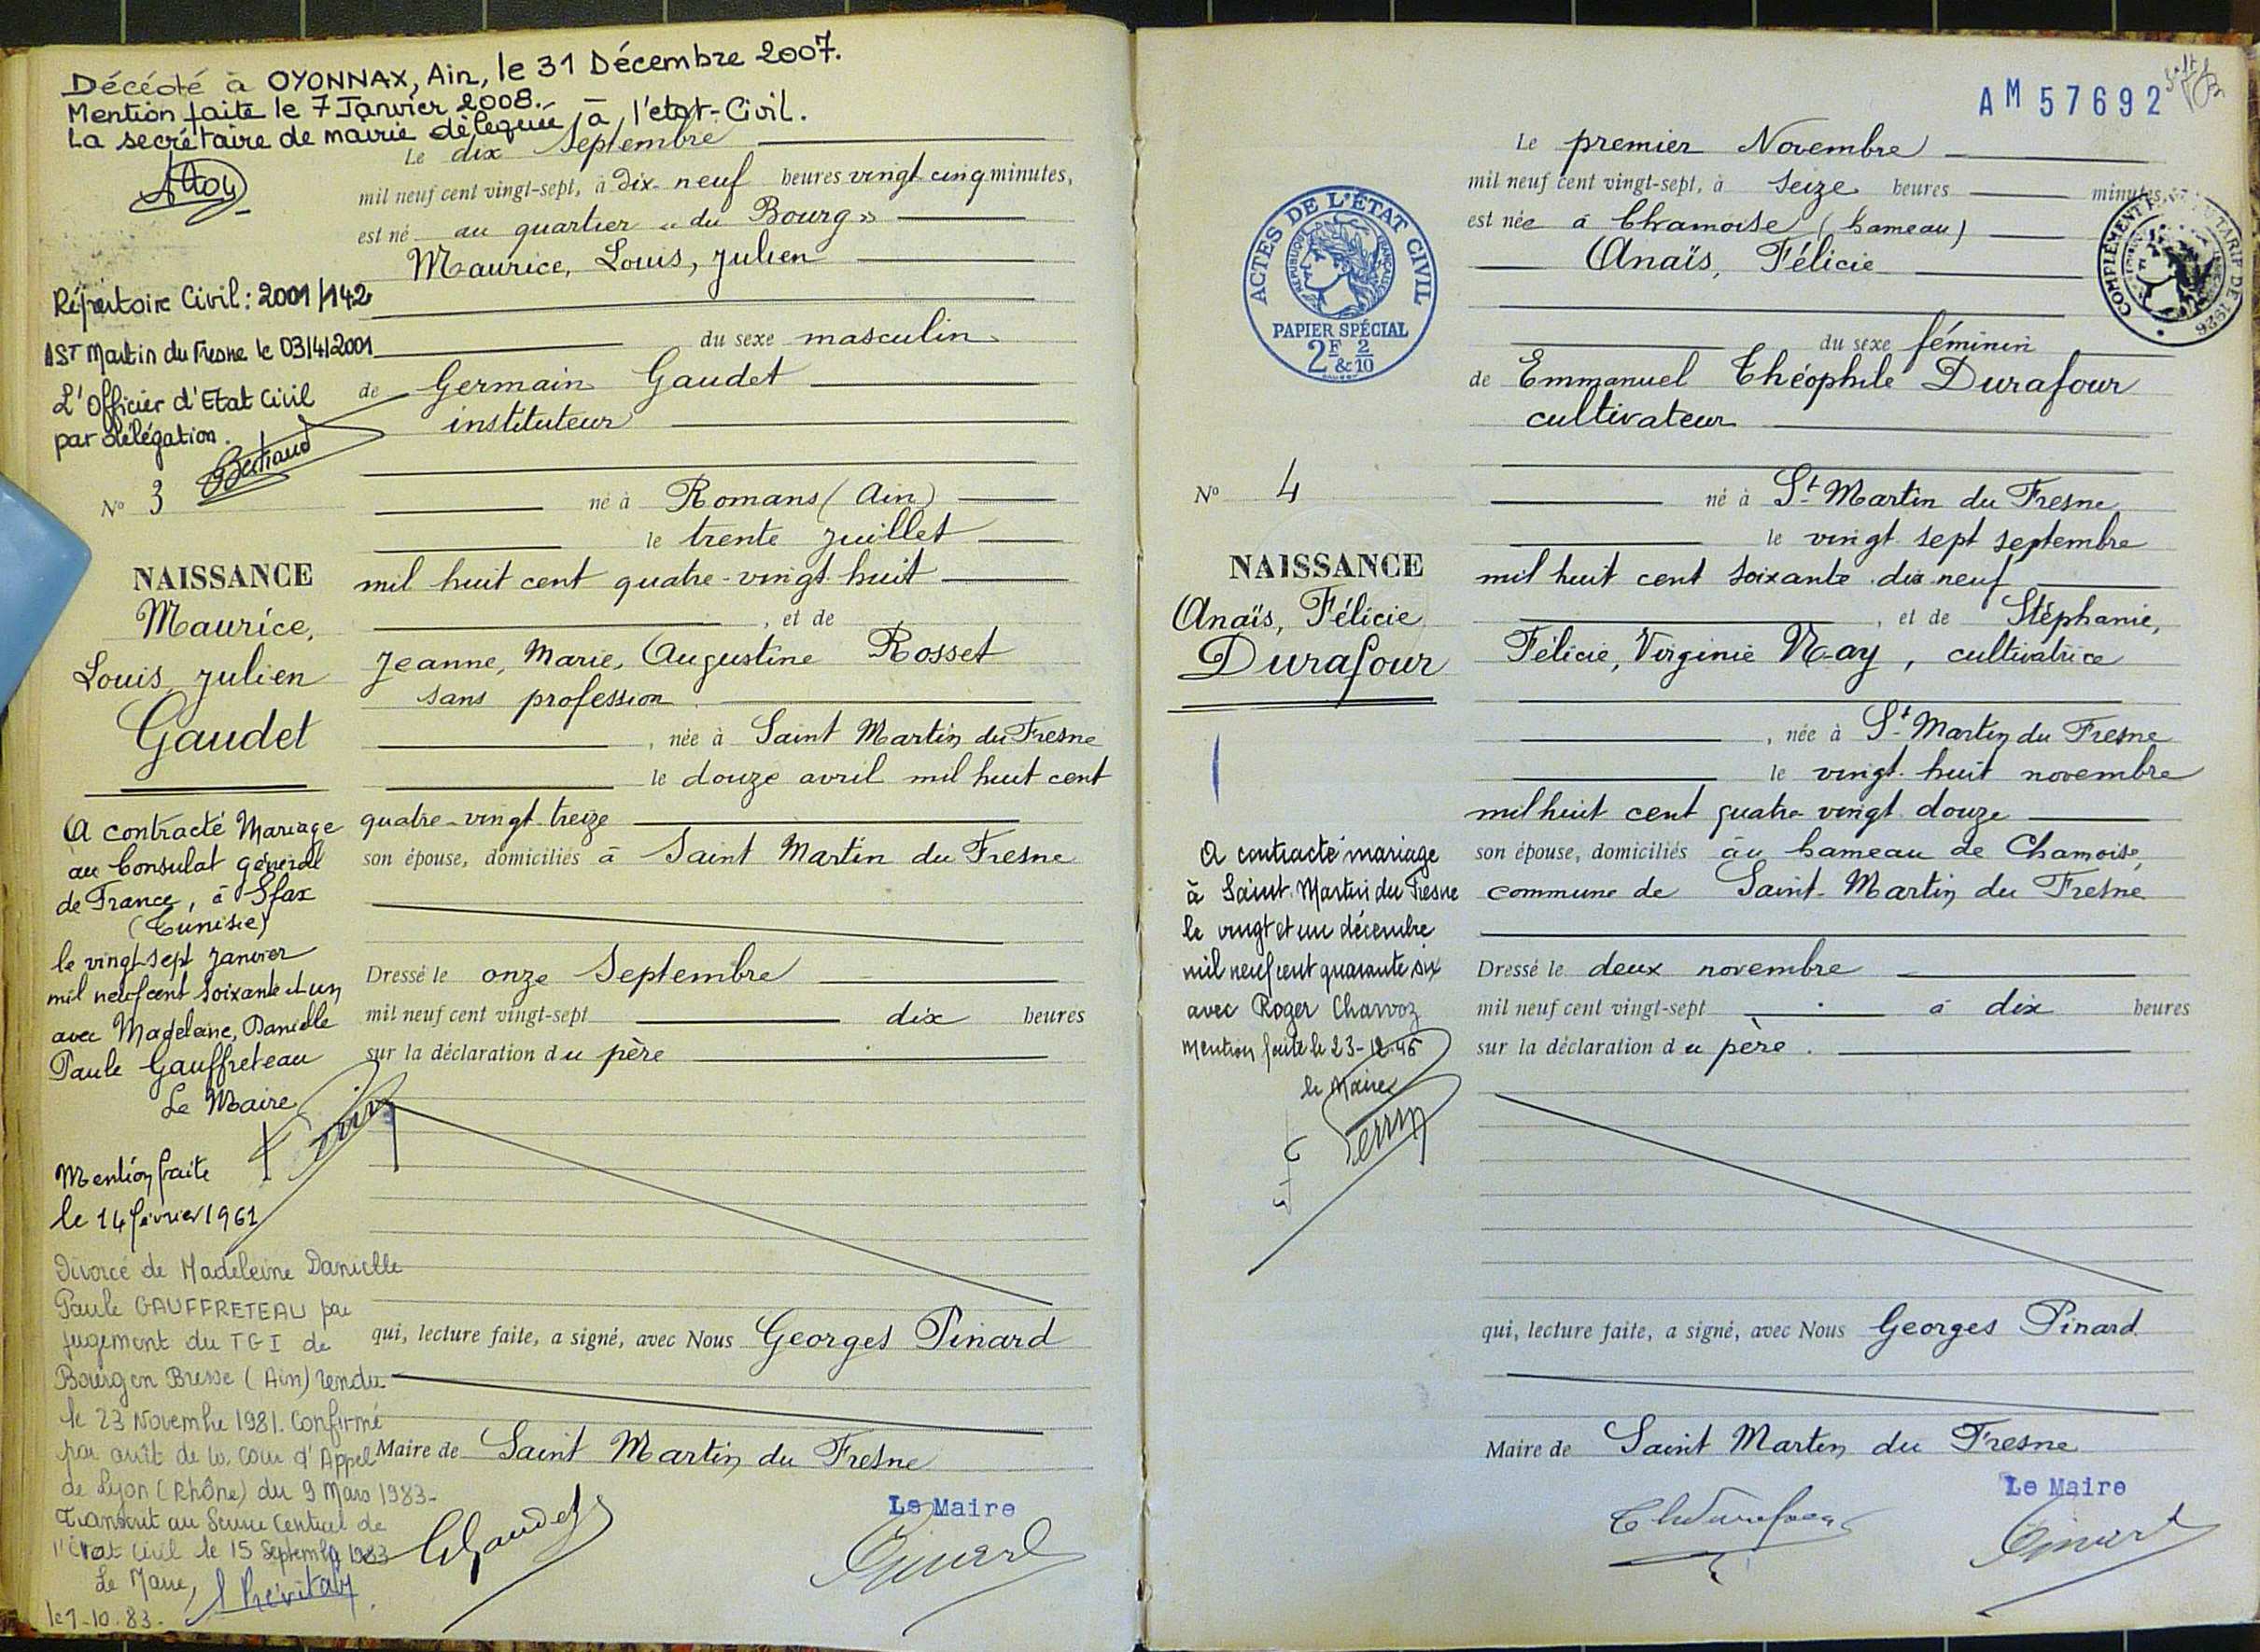 Décédé à OYONNAX, Ain, le 31 Décembre 2007.
Mention faite le 7 Janvier 2008.
La secrétaire de mairie déléguée à l'etat-Civil.
Le dix Septembre
mil neuf cent vingt-sept, à Dix-neuf heures vingt cinq minutes,
est né au quartier « du Bourg »
Maurice, Louis, Julien
Répertoire Civil : 2001/142
du sexe masculin
A ST Martin du Fresne le 03/4/2001
de Germain Gaudet
L'Officier d'Etat Civil
par délégation.
instituteur
Bertrand
N° 3
né à Romans (Ain)
le trente Juillet
mil huit cent quatre-vingt-huit
, et de
Jeanne, Marie, Augustine Rosset
sans profession
, née à Saint Martin du Fresne
le douze avril mil huit cent
quatre-vingt treize
son épouse, domiciliés à Saint Martin du Fresne
Dressé le onze Septembre
mil neuf cent vingt-sept dix heures
sur la déclaration du père
qui, lecture faite, a signé, avec Nous Georges Pinard
Maire de Saint Martin du Fresne
Le Maire
GGaudet
Pinard
NAISSANCE
Maurice,
Louis Julien
Gaudet
A contracté Mariage
au Consulat général
de France, à Sfax
(Tunisie)
le vingt sept Janvier
mil neuf cent soixante et un
avec Madeleine, Danielle
Paule Gauffreteau
Le Maire
Mention faite
le 14 février 1961
Divorcé de Madeleine Danielle
Paule GAUFFRETEAU par
jugement du TGI de
Bourg en Bresse (Ain) rendu
le 23 Novembre 1981. Confirmé
par arrêt de la Cour d'Appel
de Lyon (Rhône) du 9 Mars 1983-
Transcrit au Service Central de
l'état civil le 15 Septembre 1983
Le Maire,
le 7-10-83-
AM 57692
Le premier Novembre
mil neuf cent vingt-sept, à Seize heures minutes,
est née à Chamoise (hameau)
Anaïs, Félicie
ACTES DE L'ÉTAT CIVIL
RÉPUBLIQUE FRANÇAISE
PAPIER SPÉCIAL
2F & 2/10
COMPLÉMENT TARIF DE 1926
du sexe féminin
de Emmanuel Théophile Durafour
cultivateur
N° 4
né à St Martin du Fresne
le vingt sept septembre
mil huit cent soixante dix neuf
, et de Stéphanie,
Félicie, Virginie Nay, cultivatrice
, née à St Martin du Fresne
le vingt-huit novembre
mil huit cent quatre-vingt douze
son épouse, domiciliés au hameau de Chamoise,
commune de Saint-Martin du Fresne
Dressé le deux novembre
mil neuf cent vingt-sept à dix heures
sur la déclaration du père.
qui, lecture faite, a signé, avec Nous Georges Pinard
Maire de Saint Martin du Fresne
Le Maire
Pinard
NAISSANCE
Anaïs, Félicie
Durafour
A contracté mariage
à Saint-Martin du Fresne
le vingt et un décembre
mil neuf cent quarante six
avec Roger Charvoz
Mention faite le 23-12-46
le Maire
Perrin